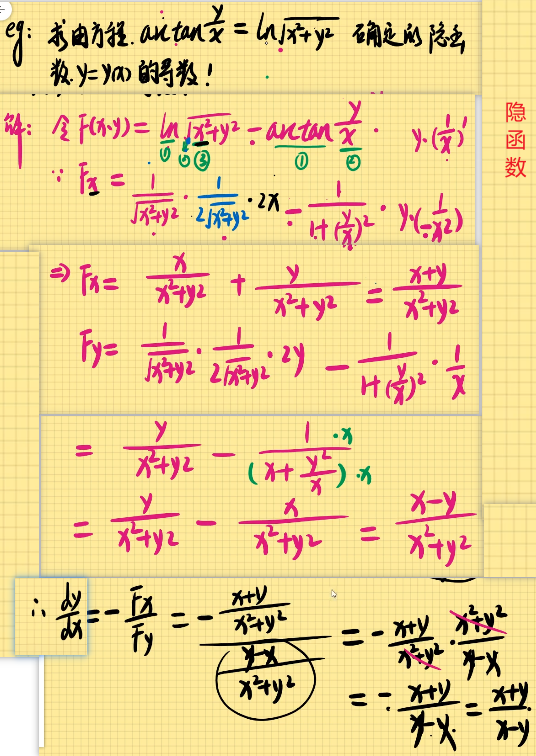 eg: 求由方程 arctan y/x = ln√(x²+y²) 确定的隐函
数 y=y(x) 的导数!
解: 令F(x·y) = ln√(x²+y²) - arctan y/x · y·(1/x)'
① ② ③ ① ②
∵ Fx = 1/√(x²+y²) · 1/(2√(x²+y²)) · 2x - 1/(1+(y/x)²) · y·(-1/x²)
隐
函
数
⇒ Fx = x/(x²+y²) + y/(x²+y²) = (x+y)/(x²+y²)
Fy = 1/√(x²+y²) · 1/(2√(x²+y²)) · 2y - 1/(1+(y/x)²) · 1/x
= y/(x²+y²) - 1·x/((x+y²/x)·x)
= y/(x²+y²) - x/(x²+y²) = (x-y)/(x²+y²)
∴ dy/dx = - Fx/Fy = - ((x+y)/(x²+y²))/((y-x)/(x²+y²)) = - (x+y)/(x²+y²) · (x²+y²)/(y-x)
= - (x+y)/(y-x) = (x+y)/(x-y)